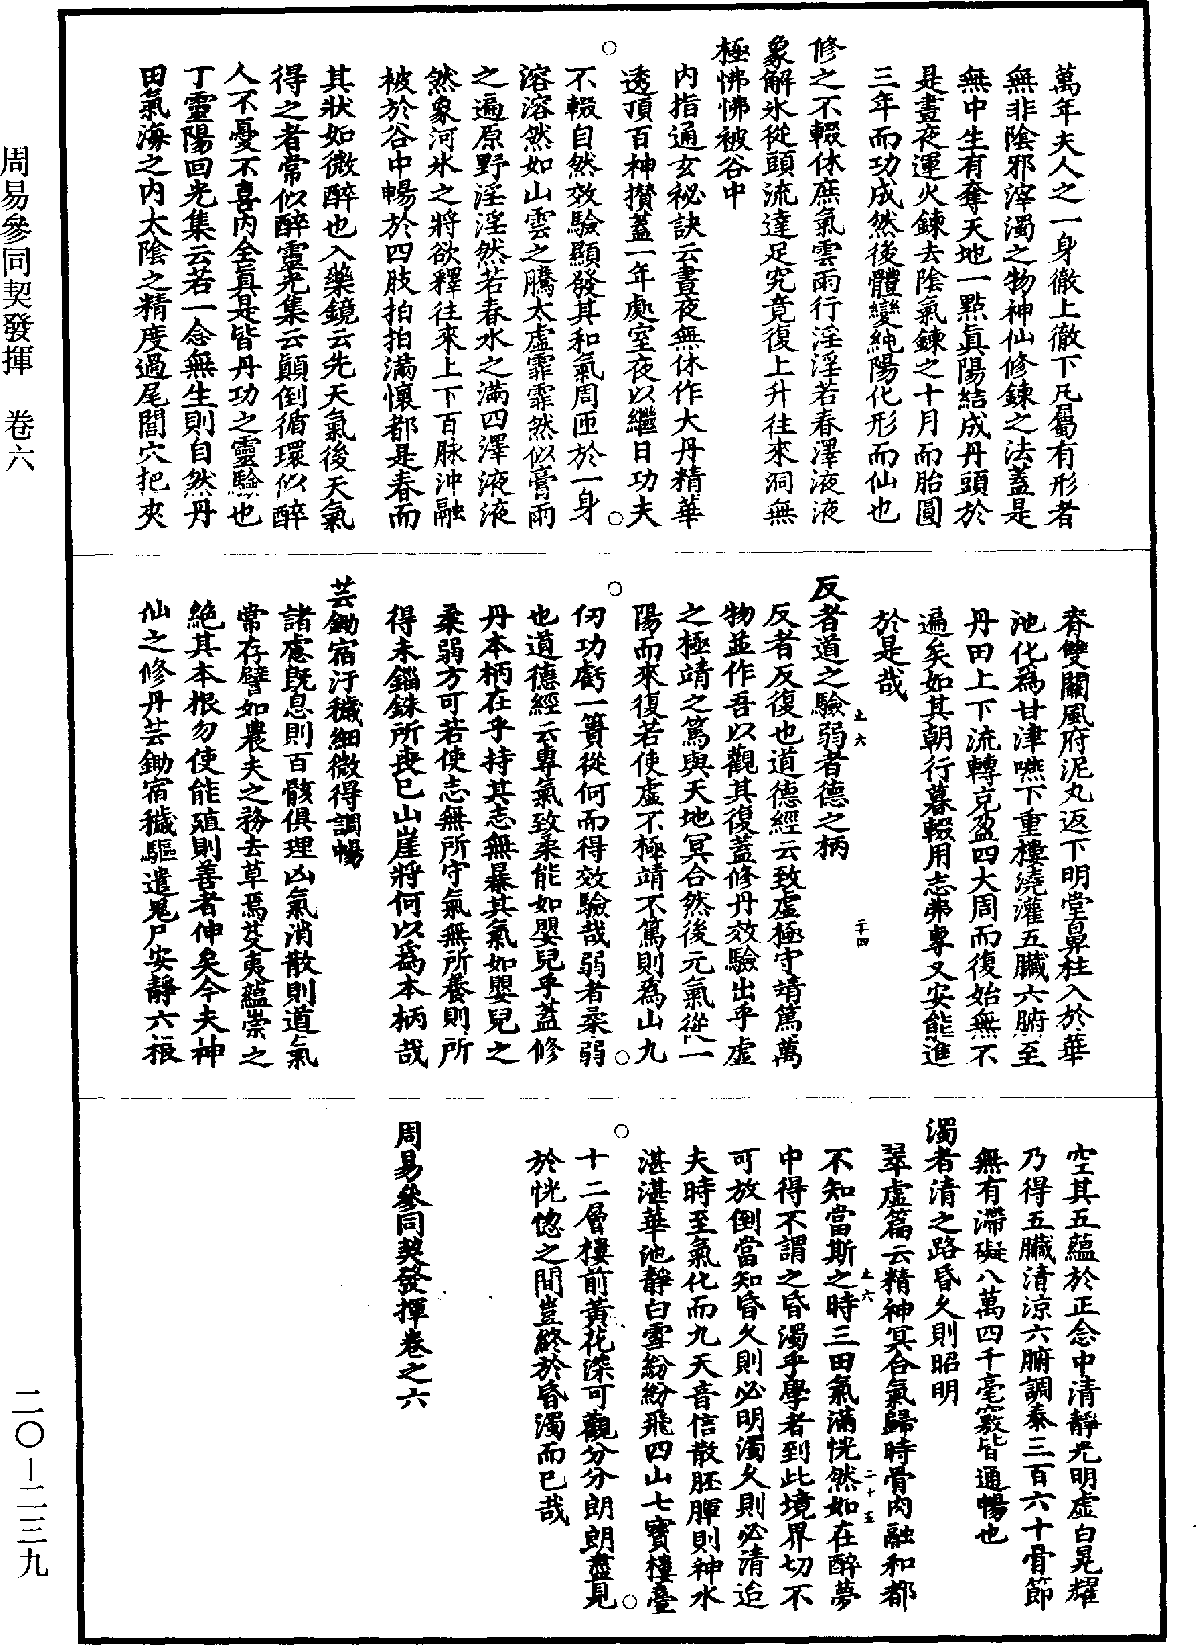 周易參同契發揮　卷六
二〇—二三九
萬年夫人之一身徹上徹下凡屬有形者
無非陰邪滓濁之物神仙修鍊之法蓋是
無中生有奪天地一點眞陽結成丹頭於
是晝夜運火鍊去陰氣鍊之十月而胎圓
三年而功成然後體變純陽化形而仙也
修之不輟休庶氣雲雨行淫淫若春澤液液
象解氷從頭流達足究竟復上升往來洞無
極怫怫被谷中
內指通玄秘訣云晝夜無休作大丹精華
透頂百神攅蓋一年處室夜以繼日功夫
不輟自然效驗顯發其和氣周匝於一身
溶溶然如山雲之騰太虛霏霏然似膏雨
之遍原野淫淫然若春水之滿四澤液液
然象河氷之將欲釋往來上下百脉沖融
被於谷中暢於四肢拍拍滿懷都是春而
其狀如微醉也入藥鏡云先天氣後天氣
得之者常似醉靈光集云顛倒循環似醉
人不憂不喜內全眞是皆丹功之靈驗也
丁靈陽回光集云若一念無生則自然丹
田氣海之內太陰之精度過尾閭穴把夾
脊雙關風府泥丸返下明堂鼻柱入於華
池化爲甘津嚥下重樓澆灌五臟六腑至
丹田上下流轉充盈四大周而復始無不
遍矣如其朝行暮輟用志弗專又安能進
於是哉
反者道之驗弱者德之柄
止六
二十四
反者反復也道德經云致虛極守靖篤萬
物並作吾以觀其復蓋修丹效驗出乎虛
之極靖之篤與天地冥合然後元氣從一
陽而來復若使虛不極靖不篤則爲山九
仞功虧一簣從何而得效驗哉弱者柔弱
也道德經云專氣致柔能如嬰兒乎蓋修
丹本柄在乎持其志無暴其氣如嬰兒之
柔弱方可若使志無所守氣無所養則所
得未錙銖所喪已山崖將何以爲本柄哉
芸鋤宿汙穢細微得調暢
諸慮既息則百骸俱理凶氣消散則道氣
常存譬如農夫之務去草焉芟夷蘊崇之
絶其本根勿使能殖則善者伸矣今夫神
仙之修丹芸鋤宿穢驅遣鬼尸安靜六根
空其五蘊於正念中清靜光明虛白晃耀
乃得五臟清涼六腑調泰三百六十骨節
無有滯礙八萬四千毫竅皆通暢也
濁者清之路昏久則昭明
翠虛篇云精神冥合氣歸時骨肉融和都
不知當斯之時三田氣滿恍然如在醉夢
止六
二十五
中得不謂之昏濁乎學者到此境界切不
可放倒當知昏久則必明濁久則必清迨
夫時至氣化而九天音信散胚腪則神水
湛湛華池靜白雪紛紛飛四山七寶樓臺
十二層樓前黃花深可觀分分朗朗盡見
於恍惚之間豈終於昏濁而已哉
周易參同契發揮卷之六